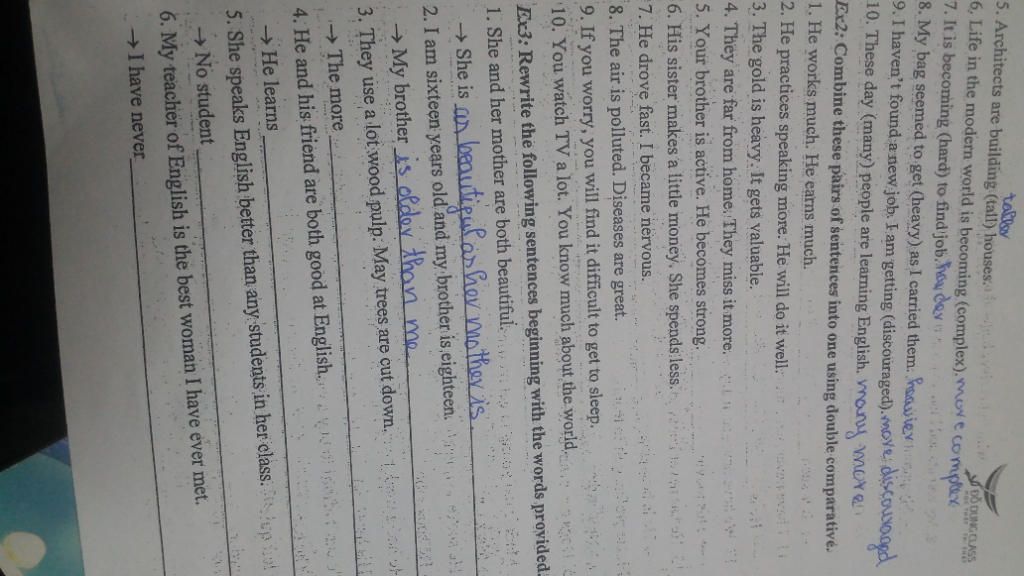 ĐÔNG DU CLASS
taller
5. Architects are building (tall) houses.
6. Life in the modern world is becoming (complex). more complex
7. It is becoming (hard) to find job. harder
8. My bag seemed to get (heavy) as I carried them. heavier
9. I haven't found a new job. I am getting (discouraged). more discouraged
10. These day (many) people are learning English. many more
Ex2: Combine these pairs of sentences into one using double comparative.
1. He works much. He earns much.
2. He practices speaking more. He will do it well.
3. The gold is heavy. It gets valuable.
4. They are far from home. They miss it more.
5. Your brother is active. He becomes strong.
6. His sister makes a little money. She spends less.
7. He drove fast. I became nervous.
8. The air is polluted. Diseases are great.
9. If you worry, you will find it difficult to get to sleep.
10. You watch TV a lot. You know much about the world.
Ex3: Rewrite the following sentences beginning with the words provided.
1. She and her mother are both beautiful.
→ She is as beautiful as her mother is.
2. I am sixteen years old and my brother is eighteen.
→ My brother is older than me
3. They use a lot wood pulp. May trees are cut down.
→ The more
4. He and his friend are both good at English.
→ He learns
5. She speaks English better than any students in her class.
→ No student
6. My teacher of English is the best woman I have ever met.
→ I have never